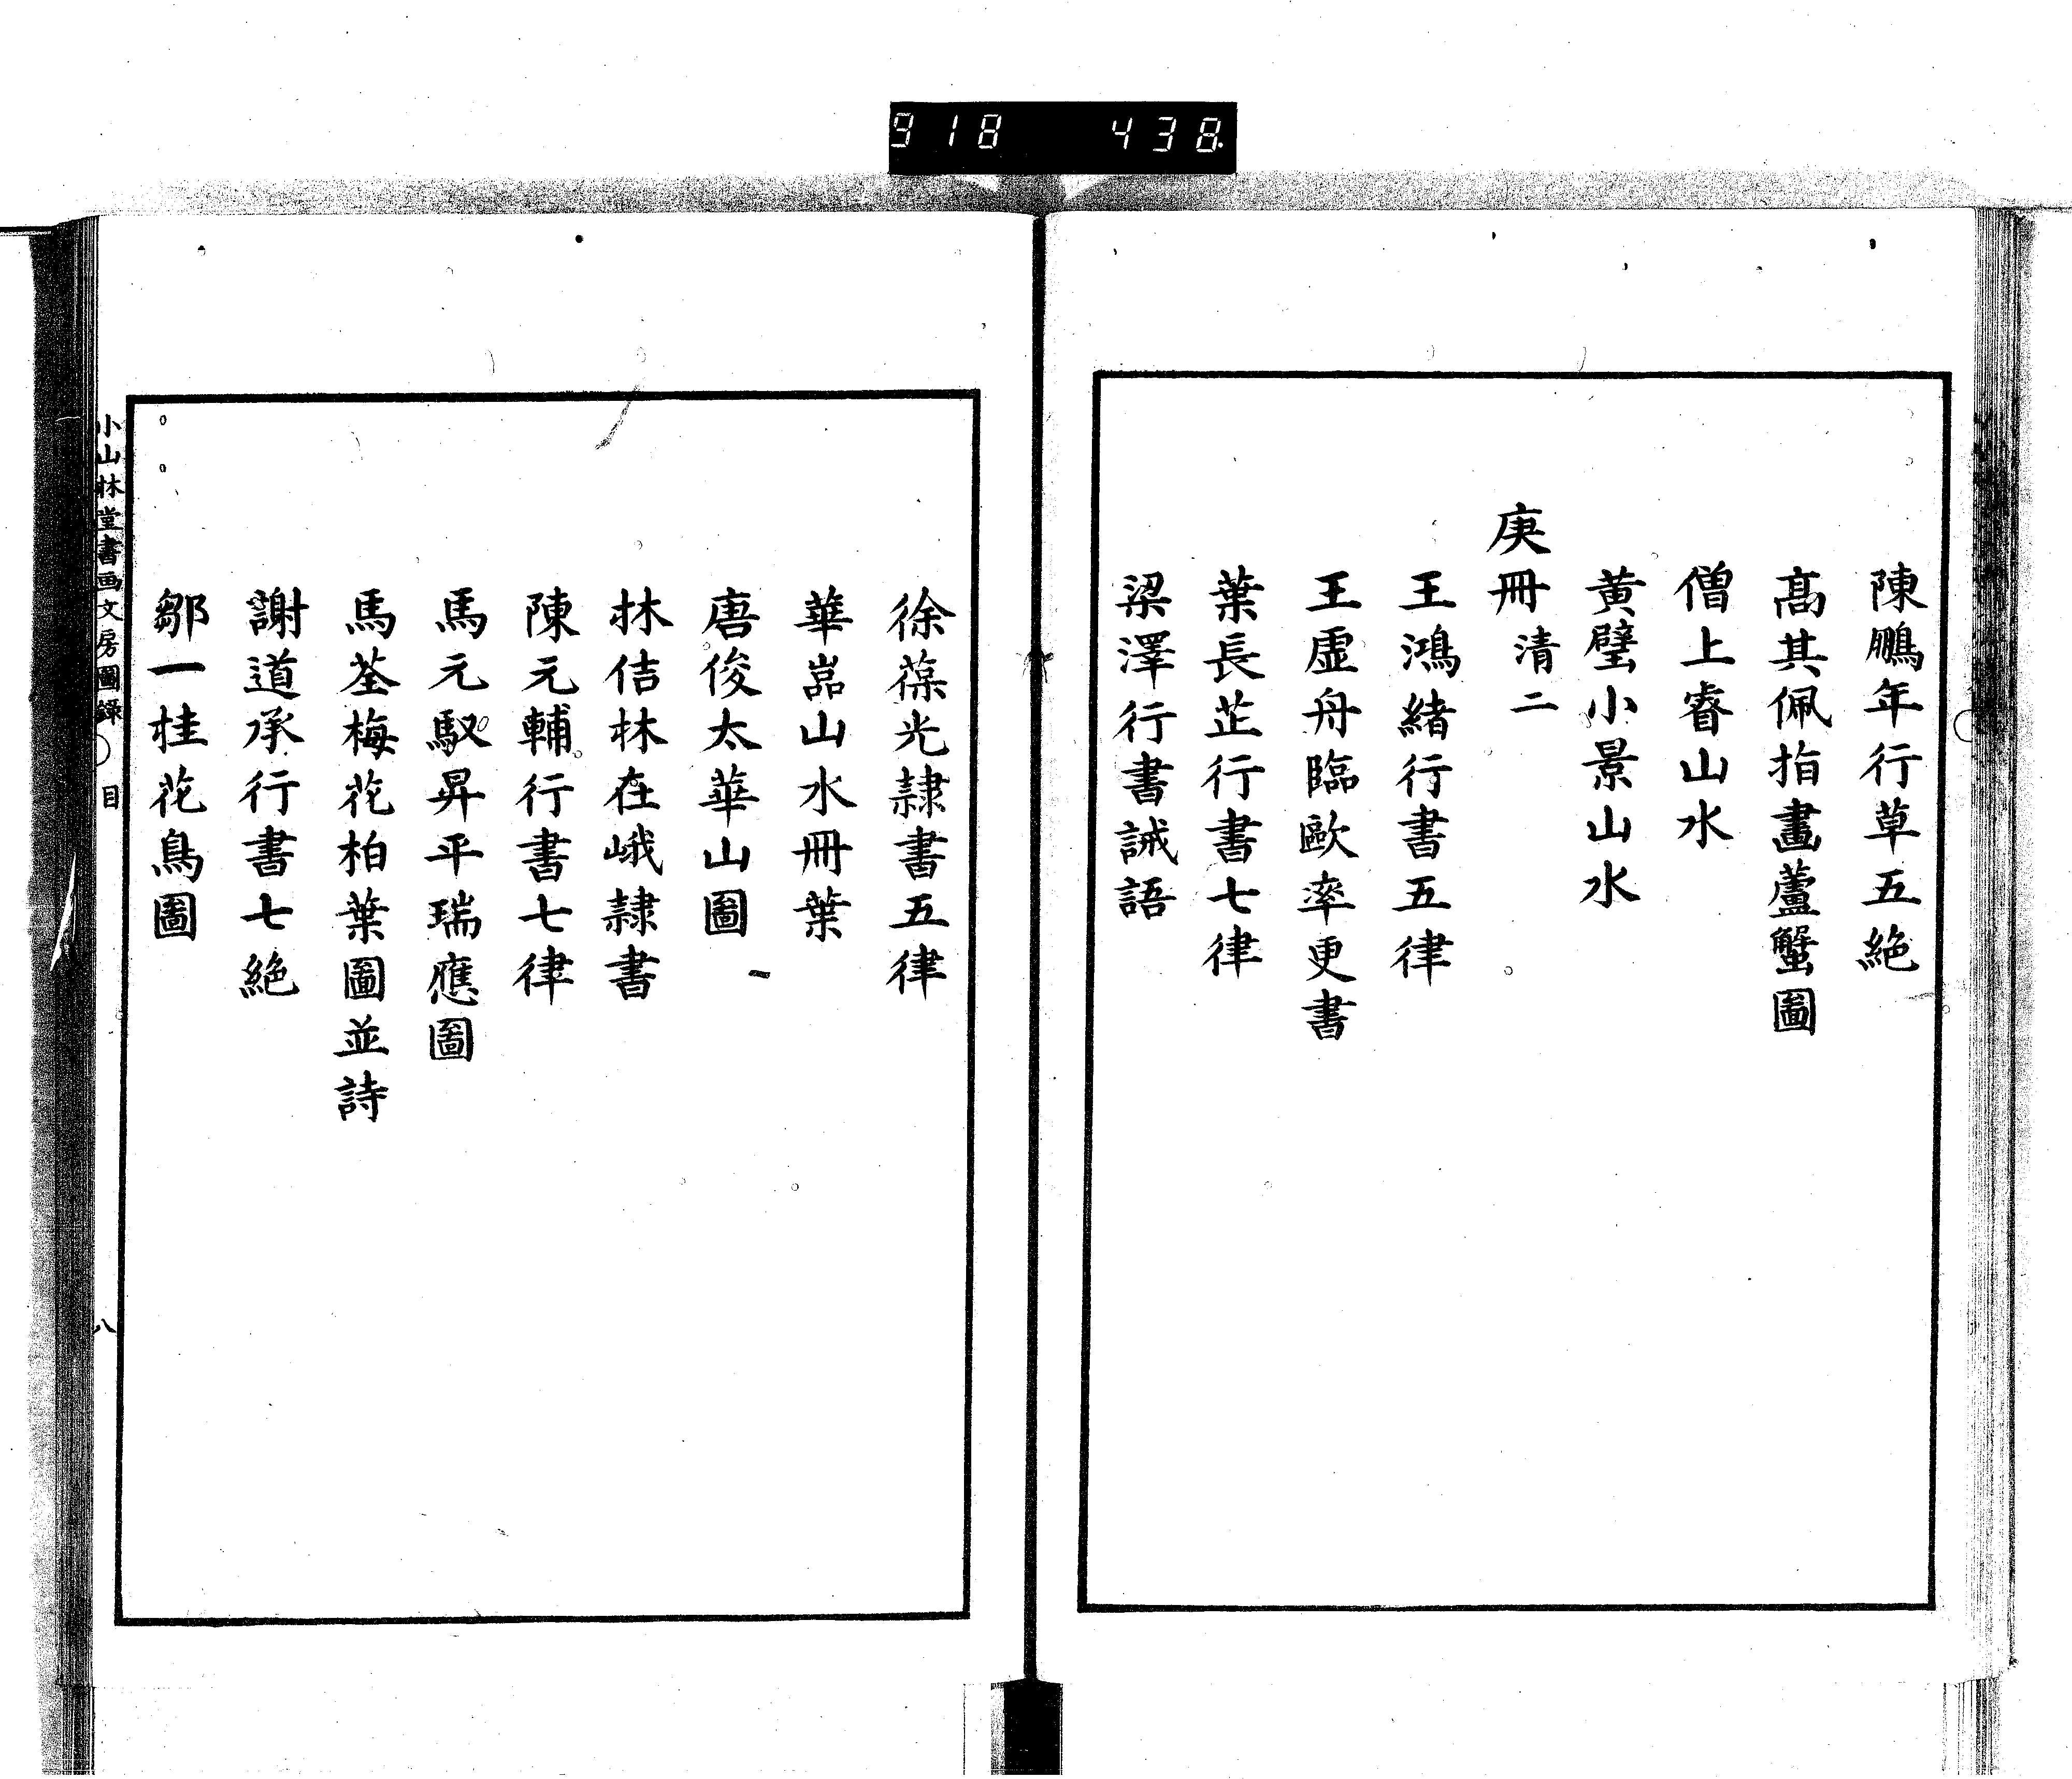 918 438
陳鵬年行草五絶
髙其佩指畫蘆蟹圖
僧上睿山水
黄璧小景山水
庚冊清二
王鴻緒行書五律
王虚舟臨歐率更書
葉長芷行書七律
梁澤行書誡語
徐葆光隷書五律
華嵓山水冊葉
唐俊太華山圖
林佶林在峨隷書
陳元輔行書七律
馬元馭昇平瑞應圖
馬荃梅花柏葉圖並詩
謝道承行書七絶
鄒一桂花鳥圖
小山林堂書画文房圖録 目 八